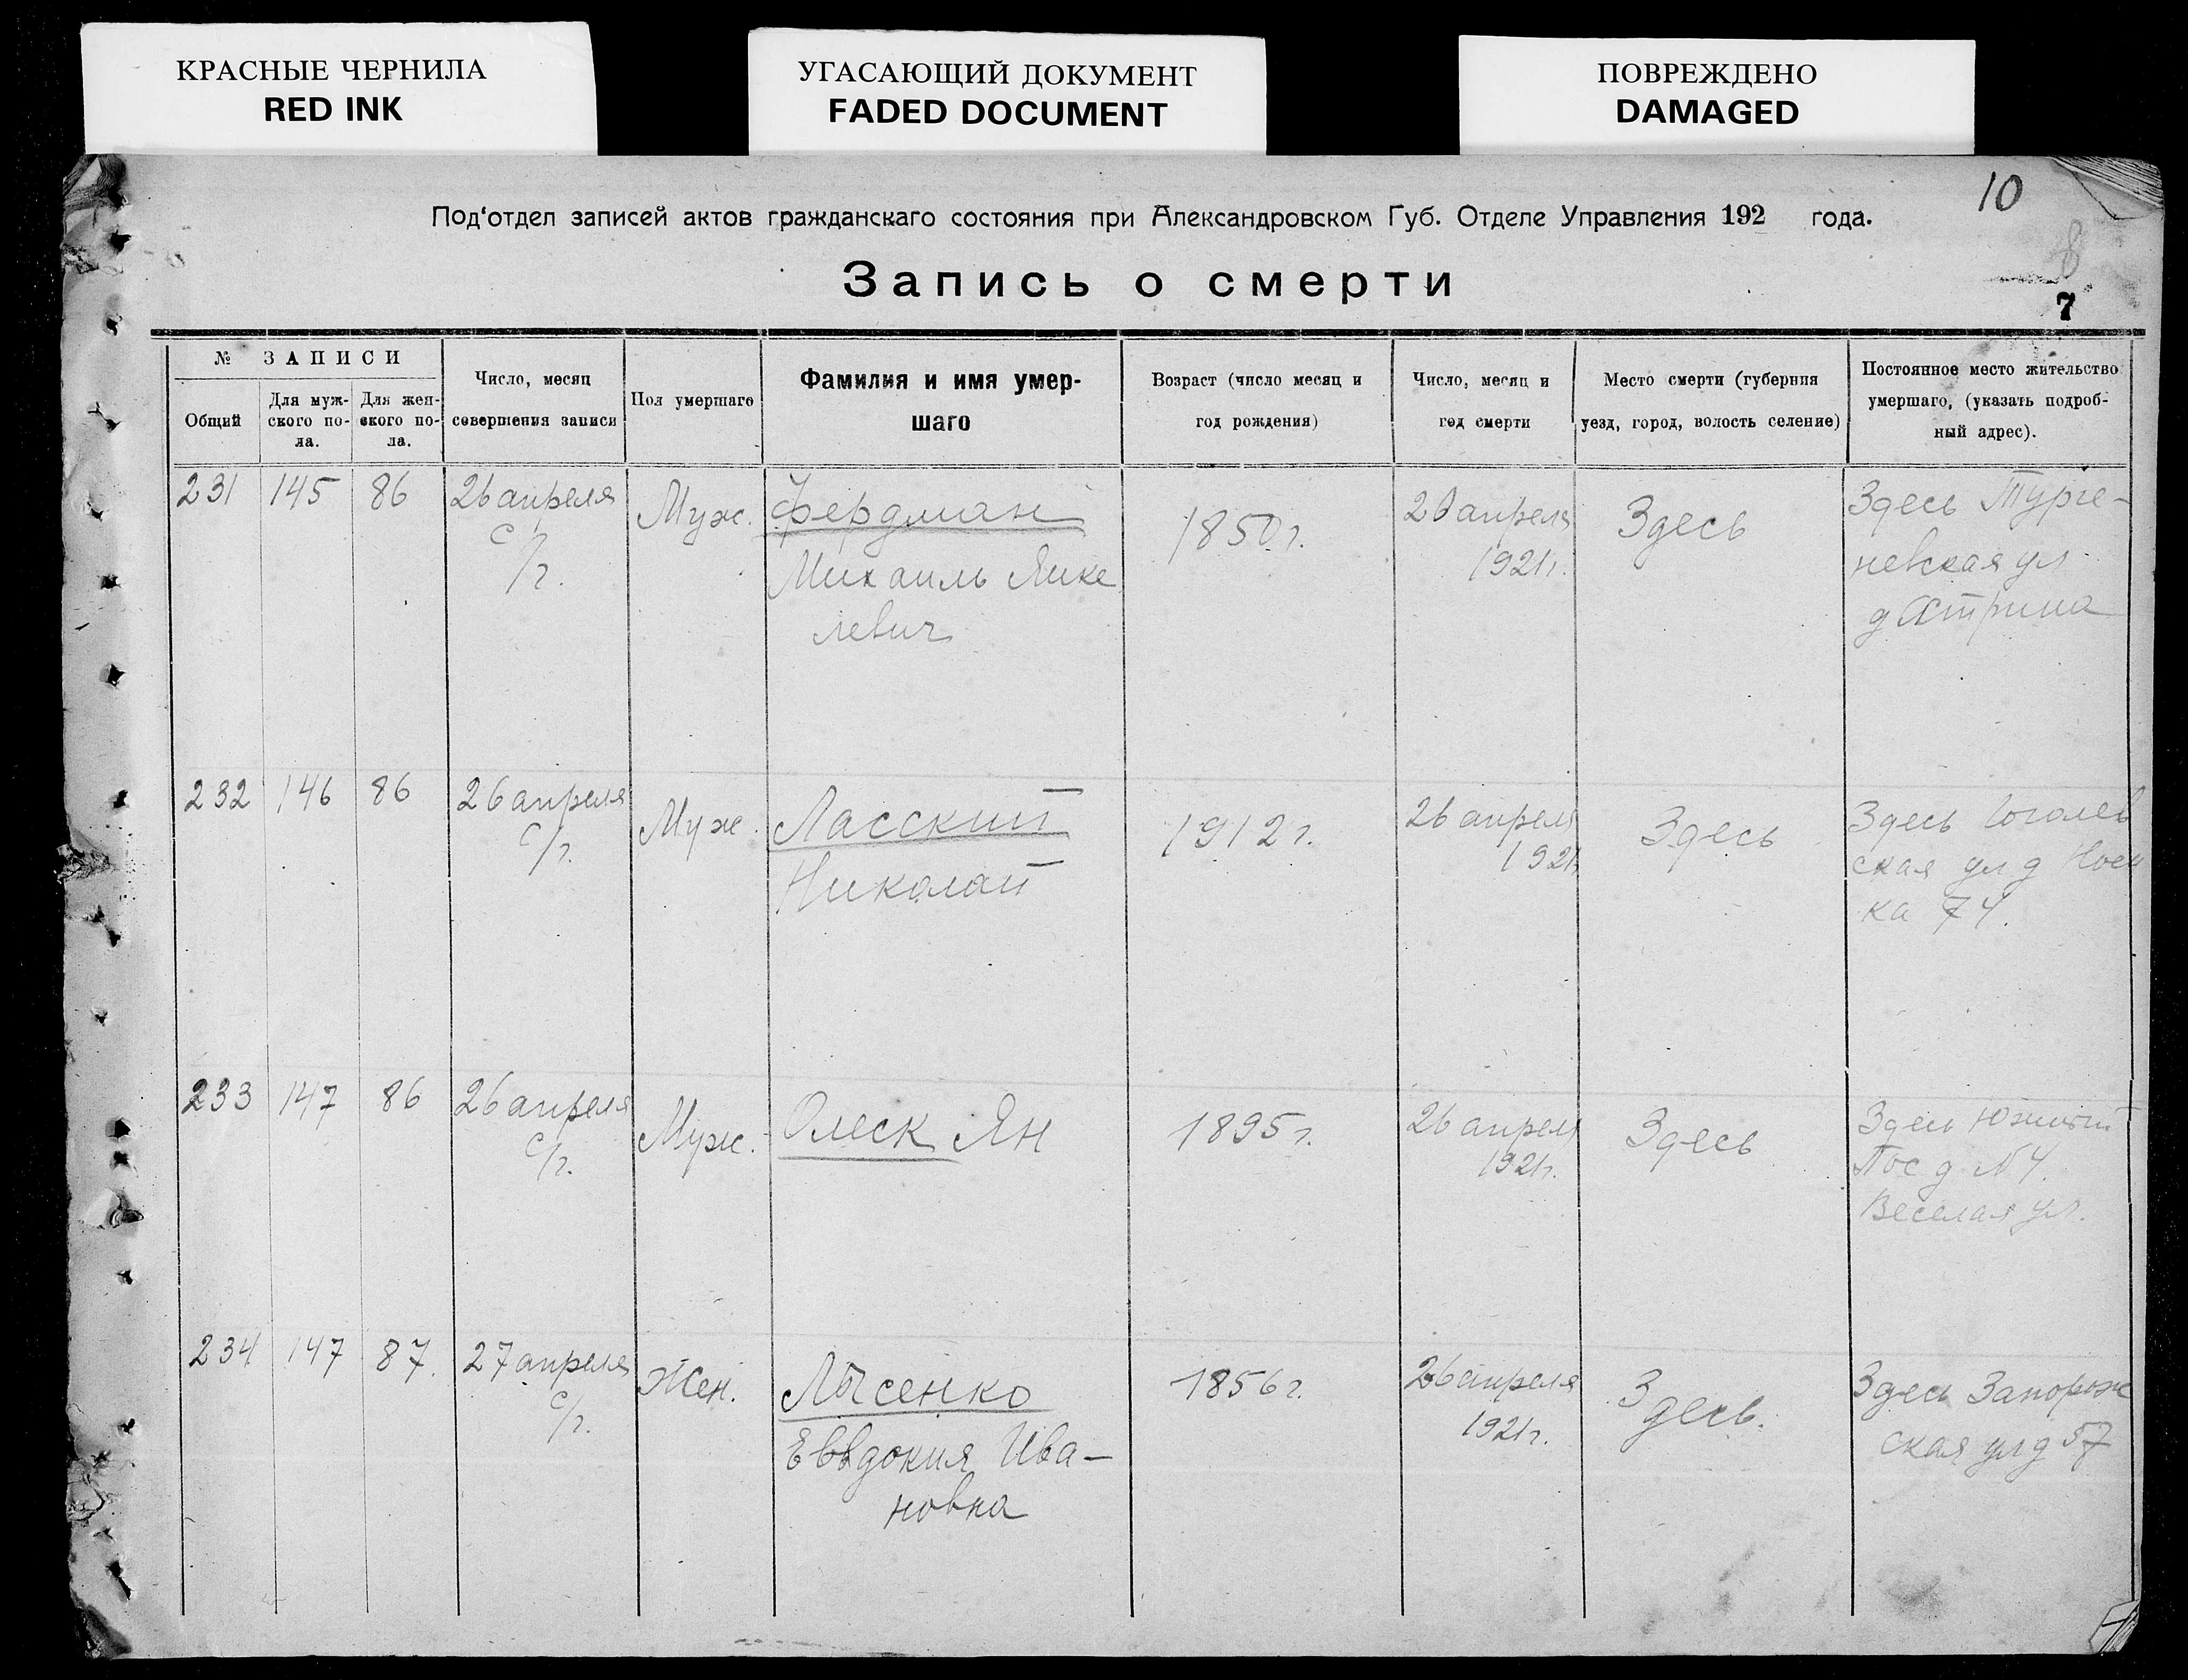 КРАСНЫЕ ЧЕРНИЛА
RED INK
УГАСАЮЩИЙ ДОКУМЕНТ
FADED DOCUMENT
ПОВРЕЖДЕНО
DAMAGED
10
Под‘отдел записей актов гражданскаго состояния при Александровском Губ. Отделе Управления 192 года.
8
Запись о смерти
7
№ ЗАПИСИ
Общий
Для муж-
ского по-
ла.
Для жен-
ского по-
ла.
Число, месяц
совершения записи
Пол умершаго
Фамилия и имя умер-
шаго
Возраст (число месяц и
год рождения)
Число, месяц и
год смерти
Место смерти (губерния
уезд, город, волость селение)
Постоянное место жительство
умершаго, (указать подроб-
ный адрес).
231
145
86
26 апреля
с/г.
Муж.
Фердман
Михаиль Янке
левич
1850 г.
апреля
1921 г.
Здесь
Здесь Турге-
невская ул
д
232
146
86
26 апреля
с/г.
Муж.
Ласский
Николай
1912 г.
26 апреля
1921
Здесь
Здесь Гоголев
ская ул д
ка 74.
233
147
86
26 апреля
с/г.
Муж.
Олеск Ян
1895 г.
26 апреля
1921 г.
Здесь
Здесь Южный
Пос д № 4.
Веселая ул.
234
147
87.
27 апреля
с/г.
Жен.
Лысенко
Еввдокия Ива-
новна
1856 г.
26 апреля
1921 г.
Здесь.
Здесь Запорож
ская ул д 57